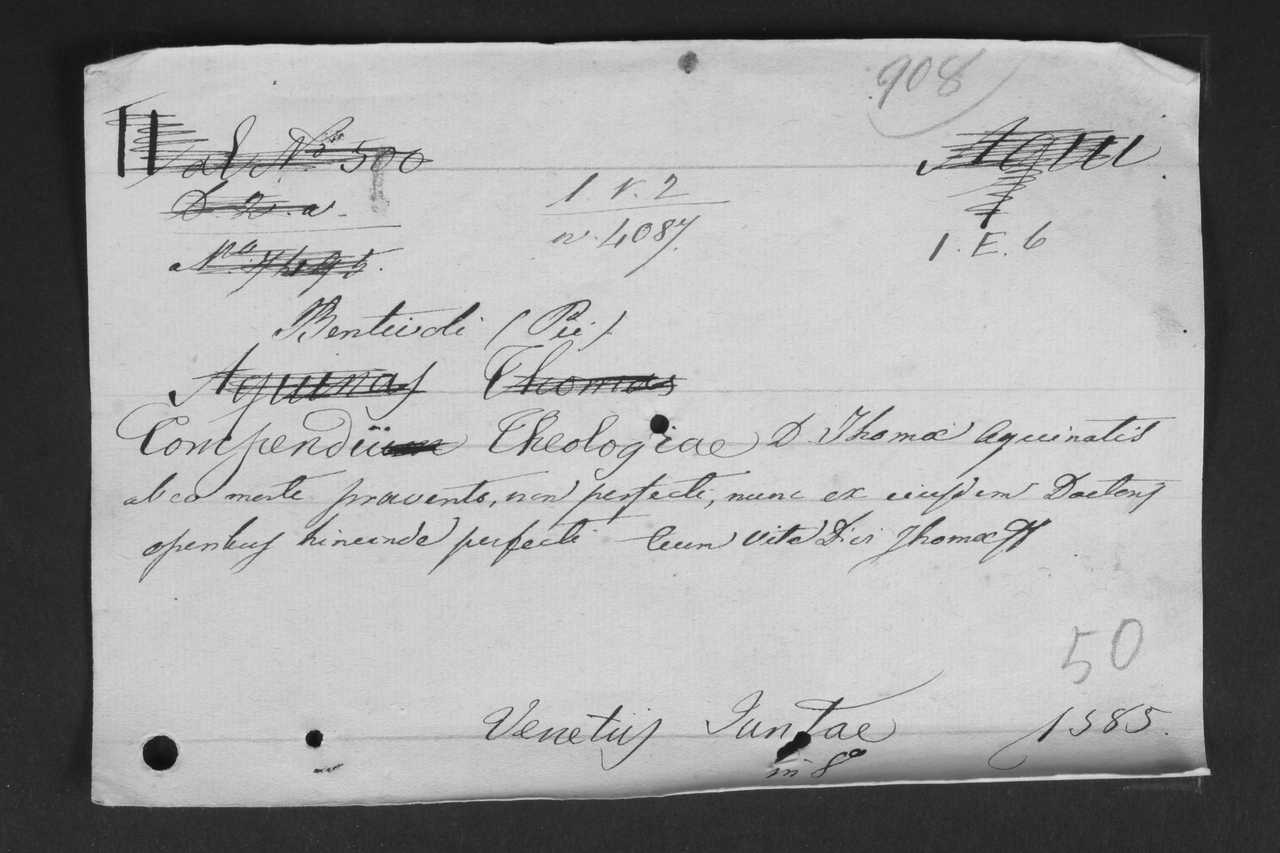 908
Val N.º 500
Aqui
D. 2. a.
1. r. 2
n. 4087.
1. E. 6
Bentivoli (Pii)
Aquinas Thomas
Compendii Theologiae D. Thomæ Aquinatis
ab eo morte provento, non perfecti, nunc ex eiusdem Doctoris
operibus hincinde perfecti Cum vita Divi Thomæ
50
Venetiis Juntae 1585.
in 8º